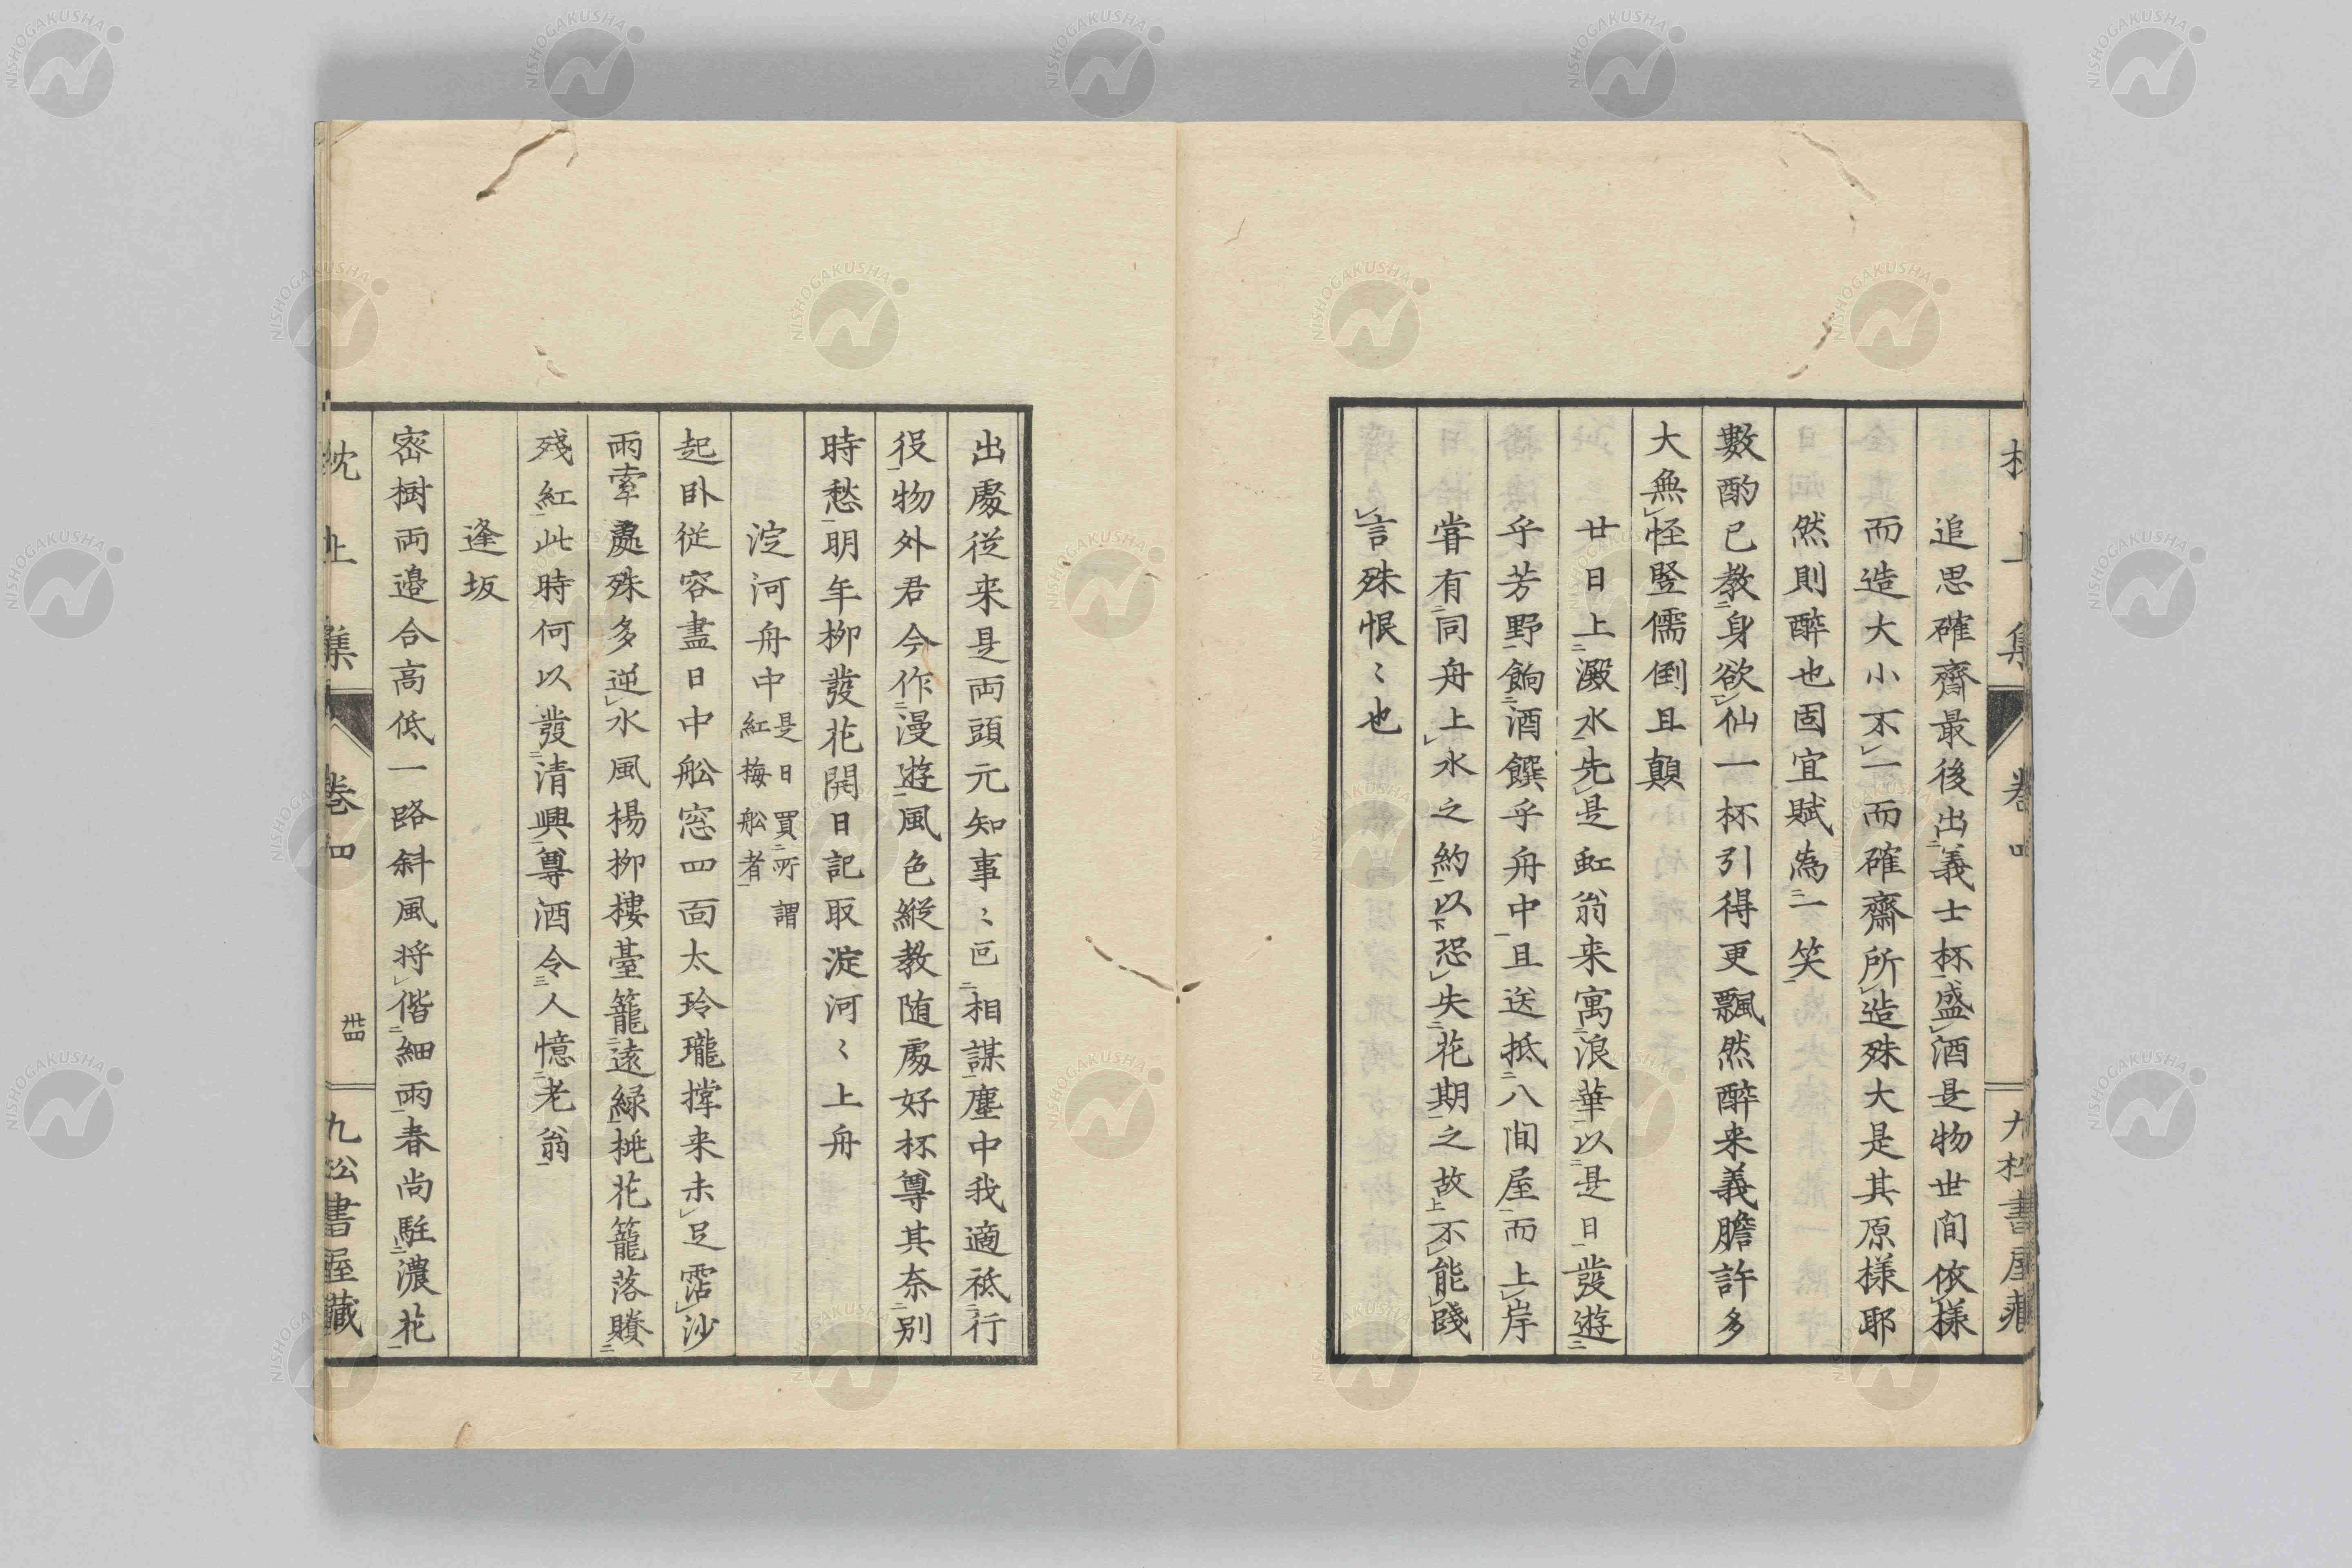 枕上集 卷四 九松書屋藏
追思確齋最後出義士杯盛酒是物世間依樣
而造大小不一而確齋所造殊大是其原樣耶
然則醉也固宜賦為一笑
數酌已教身欲仙一杯引得更飄然醉来義膽許多
大無怪竪儒倒且顛
廿日上澱水先是虹翁来寓浪華以是日發遊
乎芳野餉酒饌乎舟中且送抵八間屋而上岸
甞有同舟上水之約以恐失花期之故不能踐
言殊恨〻也
出處従来是両頭元知事〻叵相謀塵中我適祗行
役物外君今作漫遊風色縱教随處好杯尊其奈別
時愁明年柳發花開日記取淀河〻上舟
淀河舟中是日買所謂
紅梅舩者
起卧従容盡日中舩窓四面太玲瓏撑来未足霑沙
雨牽處殊多逆水風楊柳樓臺籠遠緑桃花籬落賸
殘紅此時何以發清興尊酒令人憶老翁
逢坂
宻樹両邉合高低一路斜風将偕細雨春尚駐濃花
枕上集 卷四 卅四 九松書屋藏